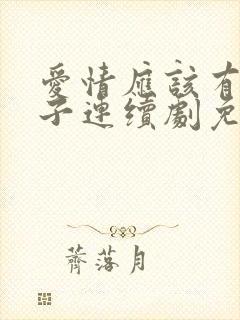 愛情應該有
子連續劇免
薺落月